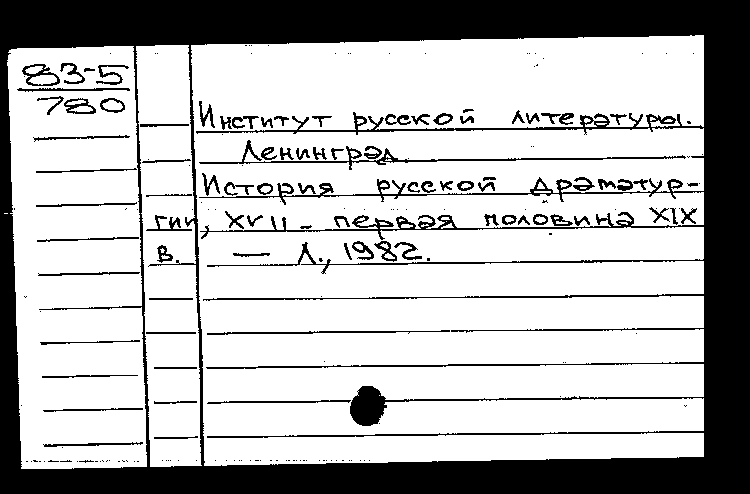 83-5
780
Институт русской литературы.
Ленинград.
История русской драматур-
гии, XVII - первая половина XIX
в. — Л., 1982.